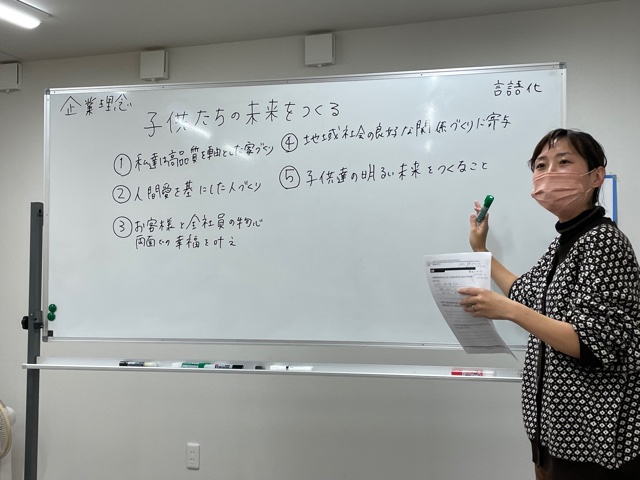 企業理念
言語化
子供たちの未来をつくる
① 私達は高品質を軸とした家づくり
② 人間愛を基にした人づくり
③ お客様と全社員の物心
両面での幸福を叶え
④ 地域社会の良好な関係づくりに寄与
⑤ 子供達の明るい未来をつくること